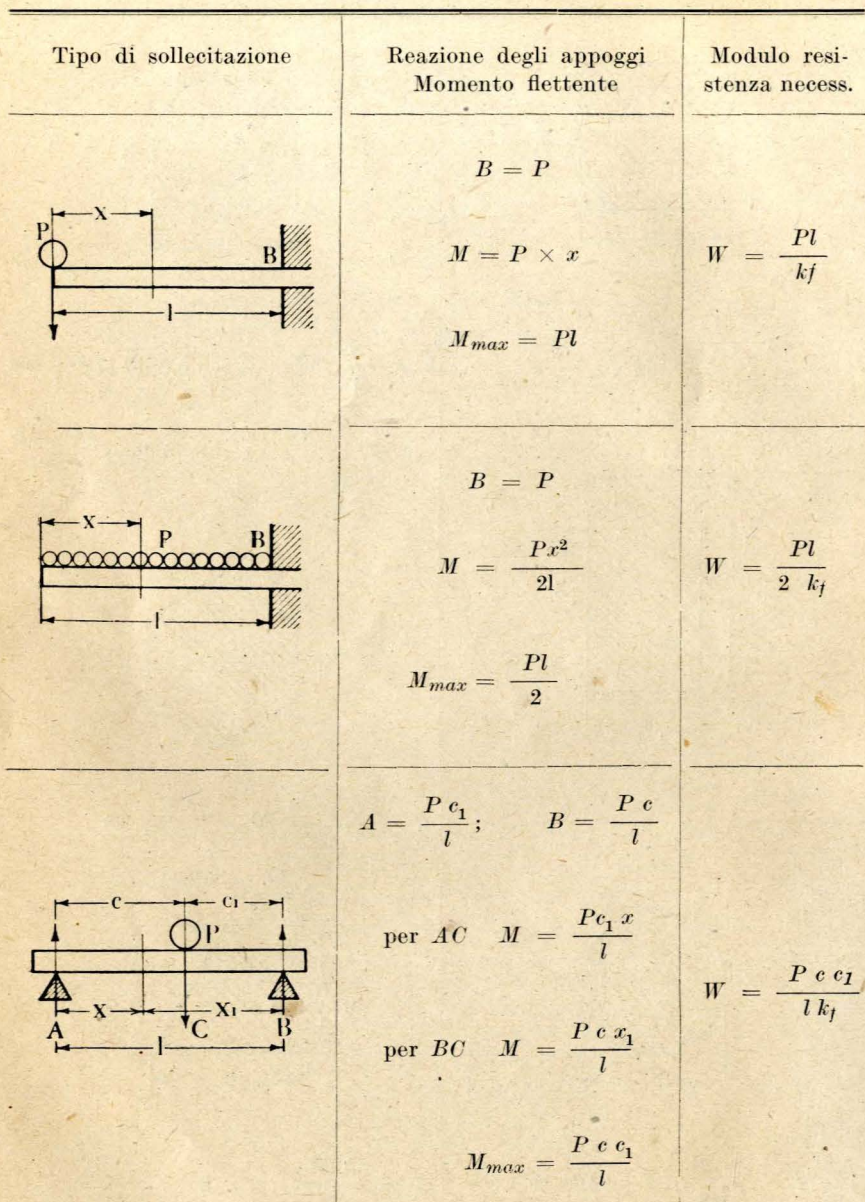 Tipo di sollecitazione
Reazione degli appoggi
Momento flettente
Modulo resi-
stenza necess.
P
x
B
l
B = P
M = P × x
M_max = Pl
W = Pl / kf
x
P
B
l
B = P
M = Px² / 2l
M_max = Pl / 2
W = Pl / 2 k_f
c
c₁
P
x
x₁
A
C
B
l
A = P c₁ / l ; B = P c / l
per AC M = Pc₁ x / l
per BC M = P c x₁ / l
M_max = P c c₁ / l
W = P c c₁ / l k_f